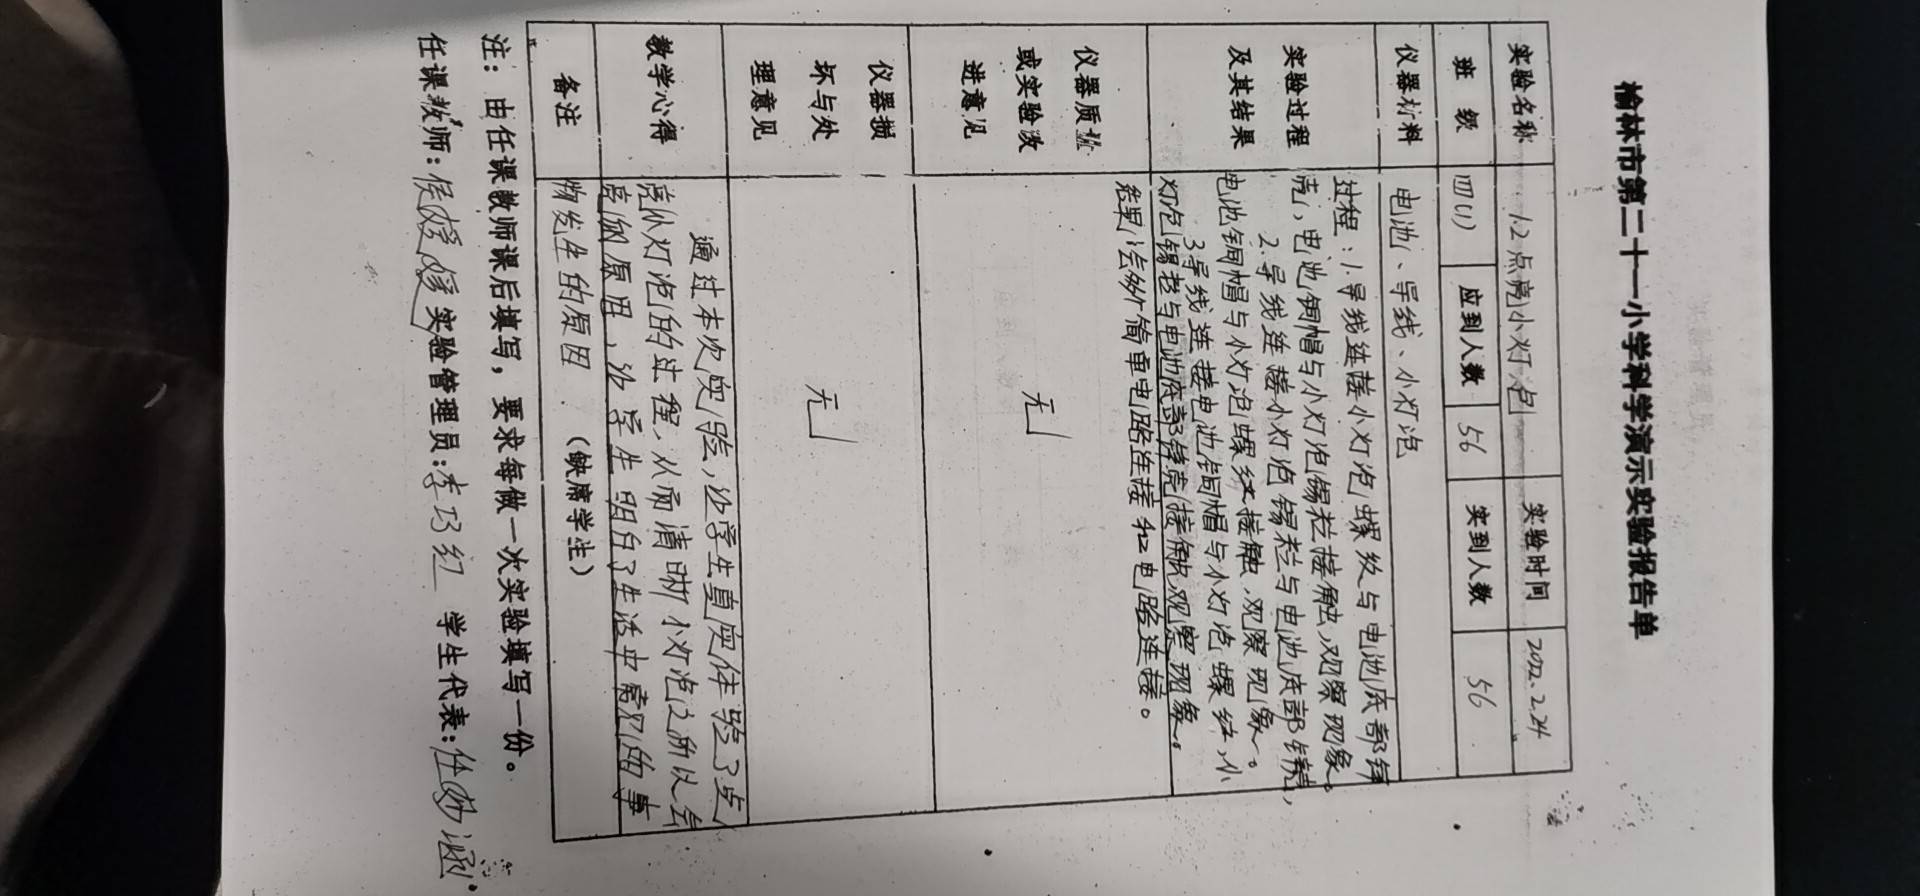 榆林市第二十一小学科学演示实验报告单
实验名称 1.2点亮小灯泡 实验时间 2022.2.24
班 级 四(1) 应到人数 56 实到人数 56
仪器材料 电池、导线、小灯泡
实验过程
及其结果
过程:1.导线连接小灯泡螺纹与电池底部锌
壳,电池铜帽与小灯泡锡粒接触,观察现象。
2.导线连接小灯泡锡粒与电池底部锌壳,
电池铜帽与小灯泡螺纹接触,观察现象。
3.导线连接电池铜帽与小灯泡螺纹,小
灯泡锡粒与电池底部锌壳接触,观察现象。
结果:会多个简单电路连接和电路连接。
仪器质量
或实验改
进意见
无
仪器损
坏与处
理意见
无
教学心得
通过本次实验,让学生真实体验了点
亮小灯泡的过程,从而清晰小灯泡之所以会
亮的原因,让学生明白了生活中常见的事
物发生的原因
备注 (缺席学生)
注:由任课教师课后填写,要求每做一次实验填写一份。
任课教师:侯媛媛 实验管理员:李巧红 学生代表:任妙涵